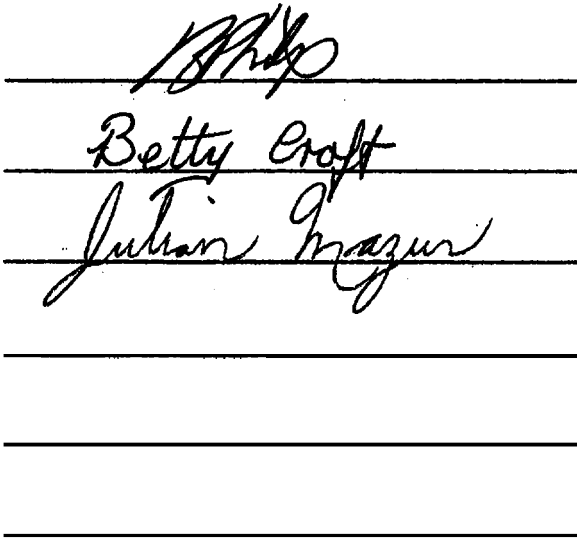 Betty Croft
Julian Mazur